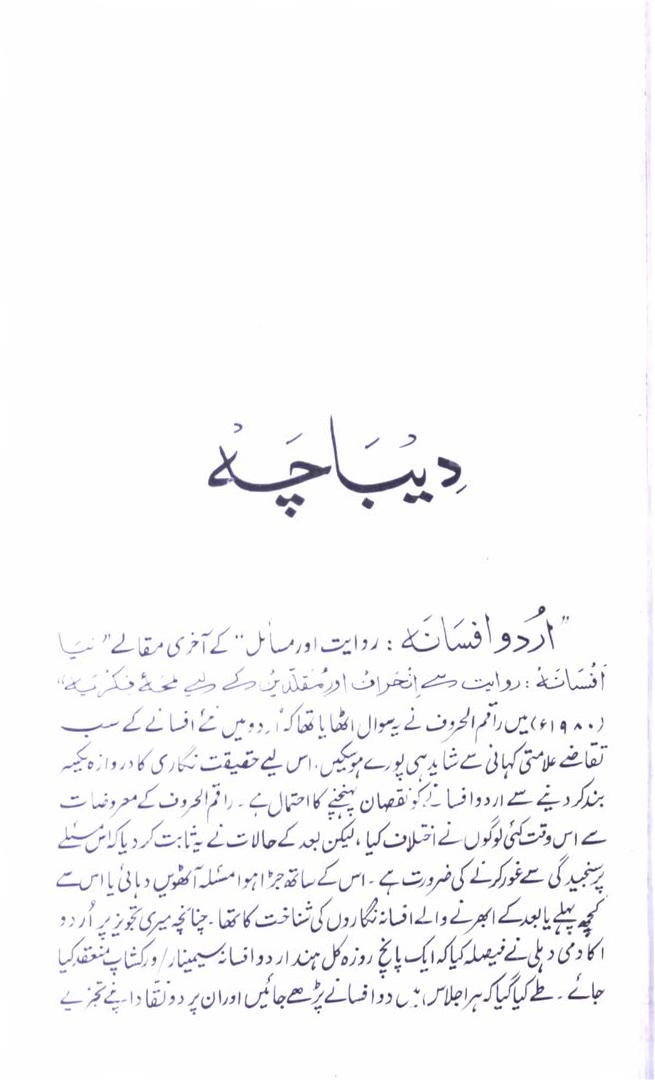 دِیبَاچَہ
”اُردو افسَانَہ : روایت اور مسائل“ کے آخری مقالے ”نیَا
اَفسَانَہ : روایت سے اِنحراف اور مُقلّدین کے لیے لمحۂ فِکریَہ“
(۱۹۸۰ء) میں راقم الحروف نے یہ سوال اٹھایا تھا کہ اردو میں نئے افسانے کے سب
تقاضے علامتی کہانی سے شاید ہی پورے ہو سکیں، اس لیے حقیقت نگاری کا دروازہ یکسر
بند کر دینے سے اردو افسانے کو نقصان پہنچنے کا احتمال ہے ۔ راقم الحروف کے معروضات
سے اس وقت کئی لوگوں نے اختلاف کیا ، لیکن بعد کے حالات نے یہ ثابت کر دیا کہ اس مسئلے
پر سنجیدگی سے غور کرنے کی ضرورت ہے ۔ اس کے ساتھ جڑا ہوا مسئلہ آٹھویں دہائی یا اس سے
کچھ پہلے یا بعد کے ابھرنے والے افسانہ نگاروں کی شناخت کا تھا ۔ چنانچہ میری تجویز پر اُردو
اکادمی دہلی نے فیصلہ کیا کہ ایک پانچ روزہ کل ہند اردو افسانہ سیمینار/ورکشاپ منعقد کیا
جائے ۔ طے کیا گیا کہ ہر اجلاس میں دو افسانے پڑھے جائیں اور ان پر دو نقاد اپنے تجزیے